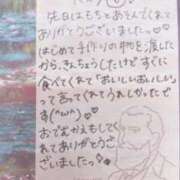 先日はもちとあそんでくれて
ありがとうございましたっ♥
はじめて手作りの物を渡した
から、きんちょうしたけどすぐに
食べてくれて「おいしいおいしい」
って言ってくれてうれしかったで
す(^ω^)♥
おでむかえもしてく
れてありがとうご
ざいましたっ♥